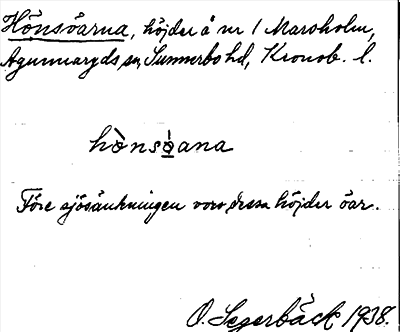 Hönsöarna, höjder å nr 1 Marsholm,
Agunnaryds sn, Sunnerbo hd, Kronob. l.
hὸnsὸ̲ana
Före sjösänkningen voro dessa höjder öar.
O. Segerbäck 1938.